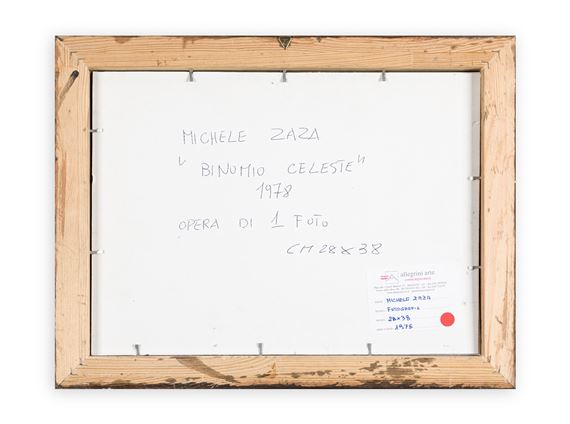 MICHELE ZAZA
"BINOMIO CELESTE"
1978
OPERA DI 1 FOTO
CM 28X38
allegrini arte
MICHELE ZAZA
FOTOGRAFIA
28x38
1975